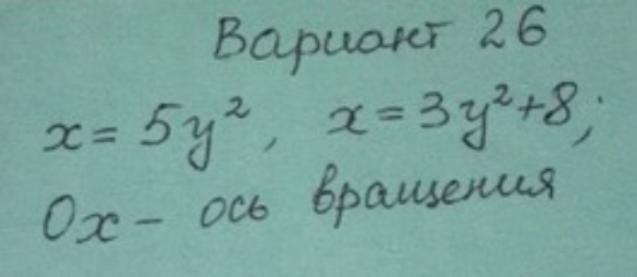 Вариант 26
x = 5y², x = 3y²+8;
Ox – ось вращения